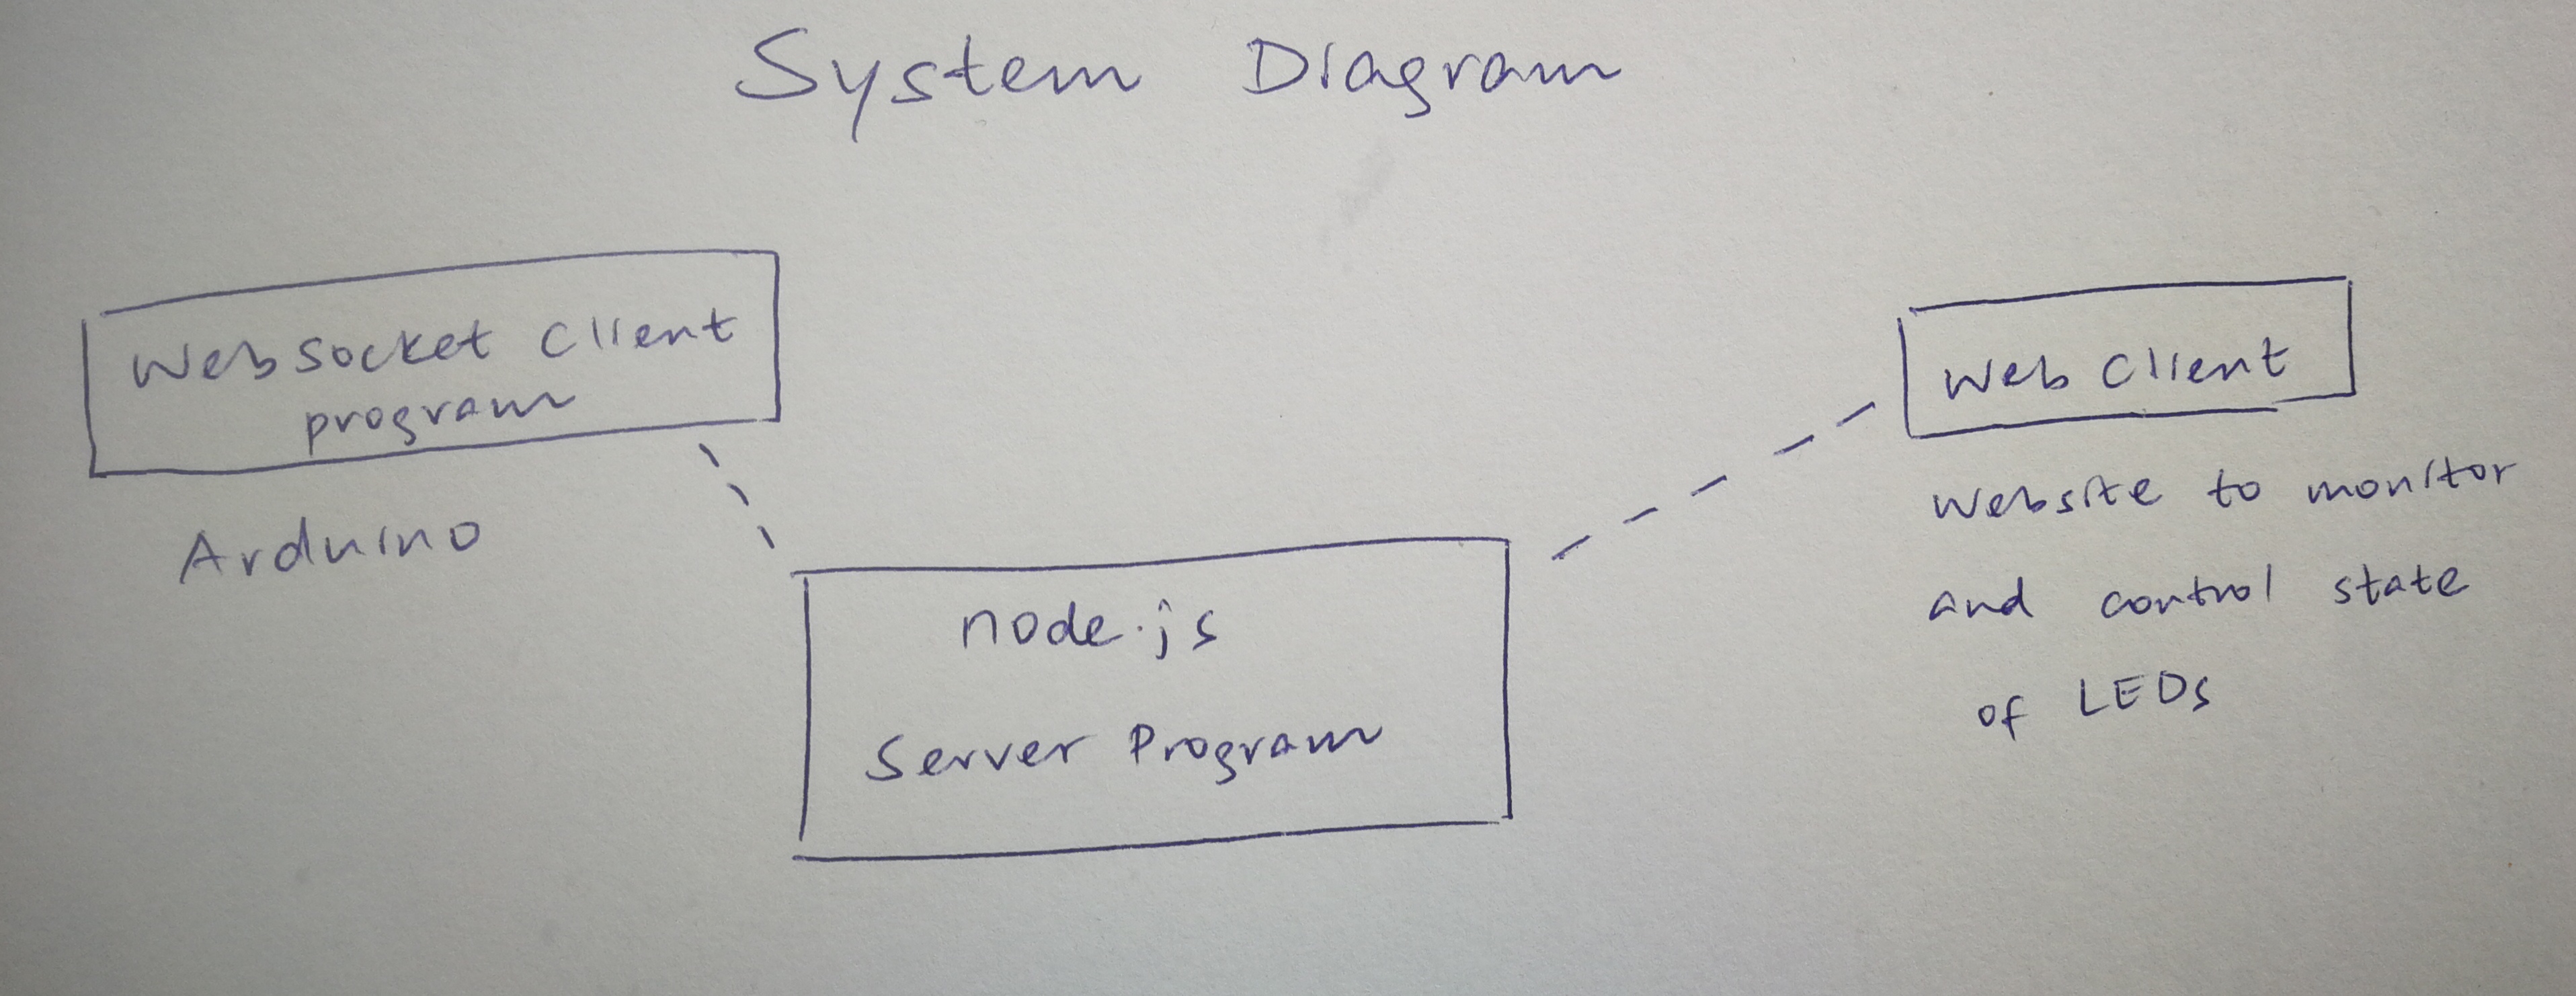 System Diagram
WebSocket Client
program
Arduino
node.js
Server Program
Web Client
Website to monitor
and control state
of LEDs